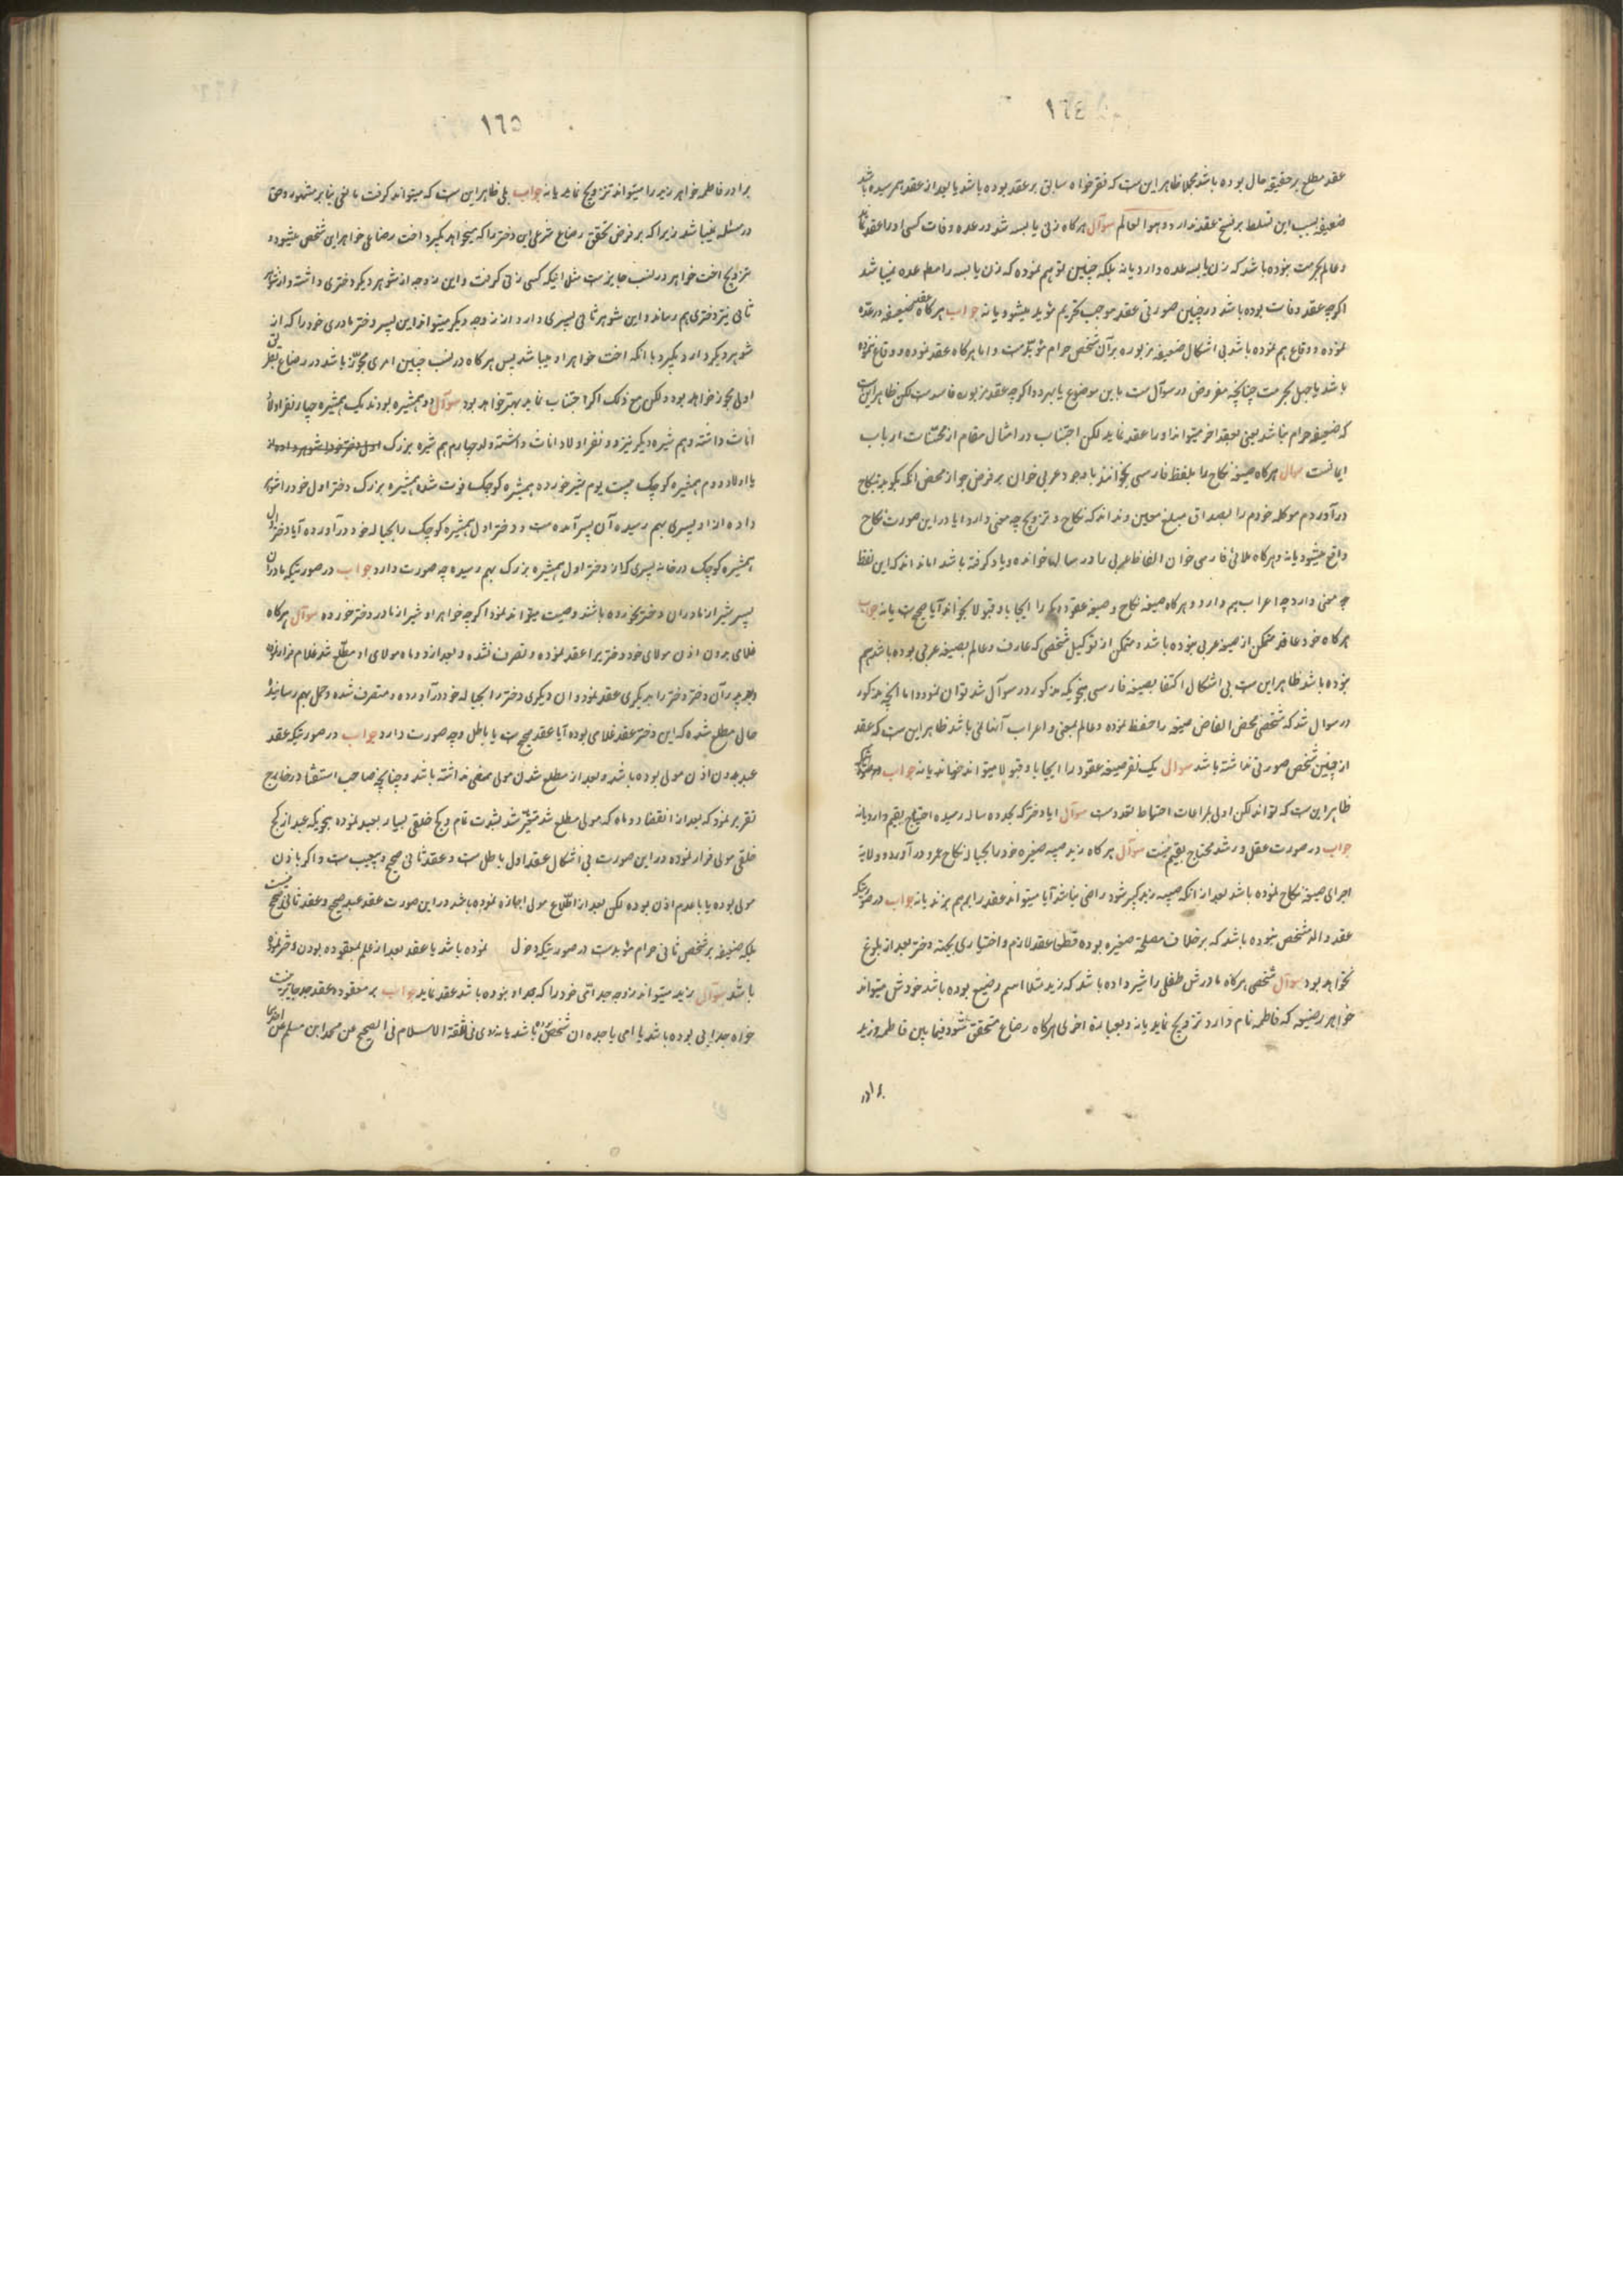 ١٦٤
عقد مطلع بر حقیقة حال بوده باشد مجملا ظاهر این ست که نقرخواه سابق بر عقد بوده باشد یا بعد از عقد بهم رسیده باشد
ضعیفه بسبب این تسلط بر فسخ عقد ندارد و هو العالم سوآل هرکاه زنی یابسه شد در عده وفات کسی او را عقد نماید
و عالم بحرمت نبوده باشد که زن یابسه عده دارد یا نه بلکه چنین توهم نموده که زن یابسه را مطلقا عده نمیباشد
اکرچه عقد وفات بوده باشد در چنین صورتی عقد موجب تحریم مؤبد میشود یا نه جواب هرکاه عقد ضعیفه در عدّه
نموده و وقاع هم نموده باشد بی اشکال ضعیفه مزبوره بر آن شخص حرام مؤبّد ست و اما هرکاه عقد نموده و وقاع ننموده
باشد با جهل بحرمت چنانچه مفروض در سوآل ست باین موضوع یا بهر دو اکرچه عقد مزبوره فاسد ست لکن ظاهر این ست
که ضعیفه حرام نباشد یعنی بعقد اخر میتواند او را عقد نماید لکن اجتناب در امثال مقام از محسّنات ارباب
ایمانست سوال هرکاه صیغه نکاح را بلفظ فارسی بخوانند با وجود عربی خوان بر فرض جواز محض انکه بکوید بنکاح
درآوردم موکله خودم را بصداق مبلغ معین و نداند که نکاح و تزویج چه معنی دارد ایا در این صورت نکاح
واقع میشود یا نه و هرکاه ملائی فارسی خوان الفاظ عربی را در رساله‌ها خوانده و یاد کرفته باشد اما نداند که این لفظ
چه معنی دارد چه اعراب هم دارد و هرکاه صیغه نکاح و صیغه عقود دیکر را ایجابا و قبولا بخواند آیا صحیح ست یا نه جواب
هرکاه خود عاقد متمکن از صیغه عربی نبوده باشد و متمکن از توکیل شخصی که عارف و عالم بصیغه عربی بوده باشد هم
نبوده باشد ظاهر این ست بی اشکال اکتفا بصیغه فارسی بنحویکه مذکور در سوآل شد توان نمود و اما انچه مذکور
در سوال شد که شخصی محض الفاض صیغه را حفظ نموده و عالم بمعنی و اعراب آنها نمی باشد ظاهر این ست که عقد
از چنین شخص صورتی نداشته باشد سوال یک نفر صیغه عقود را ایجابا و قبولا میتواند خواند یا نه جواب در صورتیکه
ظاهر این ست که تواند لکن اولی مراعات احتیاط تعدد ست سوآل ایا دختر که بحد ده ساله رسیده احتیاج بقیم دارد یا نه
جواب در صورت عقل و رشد محتاج بقیّم نیست سوآل هرکاه زید صبیه صغیره خود را بحباله نکاح عمرو درآورد و ولایة
اجرای صیغه نکاح نموده باشد بعد از انکه صبیه زید کبیر شود راضی نباشد آیا میتواند عقد را برهم بزند یا نه جواب در صورتیکه
عقد والد مشخص نبوده باشد که بر خلاف مصلحة صغیره بوده قطعا عقد لازم و اختیاری بجهته دختر بعد از بلوغ
نخواهد بود سوآل شخصی هرکاه مادرش طفلی را شیر داده باشد که زید مثلا اسم رضیع بوده باشد خودش میتواند
خواهر رضیعه که فاطمه نام دارد تزویج نماید یا نه و بعبارة اخری هرکاه رضاع متحقق شود فیما بین فاطمه و زید
برادر
١٦٥
برادر فاطمه خواهر زید را میتواند تزویج نماید یا نه جواب بلی ظاهر این ست که میتواند کرفت مانعی بنابر مشهور و حق
در مسئله نمیباشد زیرا که بر فرض تحقق رضاع شرعی این دختر را که میخواهد بگیرد اخت رضاعی خواهر این شخص میشود و
تزویج اخت خواهر در نسب جایز ست مثل اینکه کسی زنی کرفت و این زوجه از شوهر دیکر دختری داشته و از شوهر
ثانی نیز دختری هم رساند و این شوهر ثانی پسری دارد از زوجه دیکر میتواند این پسر دختر مادری خود را که از
شوهر دیکر دارد بکیرد با انکه اخت خواهر او میباشد پس هرکاه در نسب چنین امری مجوّز باشد در رضاع بطریق
اولی مجوز خواهد بود و لکن مع ذلک اکر اجتناب نماید بهتر خواهد بود سوآل دو همشیره بودند یک همشیره چهار نفر اولاد
اناث داشته و هم شیره دیکر نیز دو نفر اولاد اناث داشته ولد چهارم هم شیره بزرک
با اولاد دوم همشیره کوچک بیست یوم شیر خورده همشیره کوچک فوت شده همشیره بزرک دختر اول خود را شوهر
داده از او پسری بهم رسیده آن پسر آمده ست و دختر اول همشیره کوچک را بحباله خود درآورده آیا دختر اول
همشیره کوچک در خانه پسری که از دختر اول همشیره بزرک بهم رسیده چه صورت دارد جواب در صورتیکه مادر آن
پسر شیر از مادر آن دختر نخورده باشد وصیت میتواند نمود اکرچه خواهر او شیر از مادر دختر خورده سوآل هرکاه
غلامی بدون اذن مولای خود دختری را عقد نموده و تصرف نشده و بعد از دو ماه مولای او مطلّع شد غلام فرار نموده
و بعد پدر آن دختر دختر را بدیکری عقد نمود و ان دیکری دختر را بحباله خود درآورده و متصرف شده و حمل بهم رسانیده
حال مطلع شده که این دختر عقد غلامی بوده آیا عقد صحیح ست یا باطل و چه صورت دارد جواب در صورتیکه عقد
عبد بدون اذن مولی بوده باشد و بعد از مطلع شدن مولی ممضی نداشته باشد و چنانچه صاحب استفتا در خارج
تقریر نمود که بعد از انقضاء دو ماه که مولی مطلع شد متغیّر شد بشدت تام و کج خلقی بسیار بعبد نموده بنحویکه عبد از کج
خلقی مولی فرار نموده در این صورت بی اشکال عقد اول باطل ست و عقد ثانی صحیح و بیعیب ست و اکر باذن
مولی بوده یا با عدم اذن بوده لکن بعد از اطّلاع مولی اجازه نموده باشد در این صورت عقد عبد صحیح و عقد ثانی صحیح نیست
بلکه ضعیفه بر شخص ثانی حرام مؤبد ست در صورتیکه دخول نموده باشد یا عقد بعد از علم بمعقوده بودن دختر نموده
باشد سوآل زید میتواند زوجه جد امّی خود را که جد او نبوده باشد عقد نماید جواب بر معقوده عقد جد جایز نیست
خواه جد ابی بوده باشد یا امی یا جده ان شخص بوده باشد یا نه روی فی ثقة الاسلام فی الصحیح عن محمد ابن مسلم عن احدهما